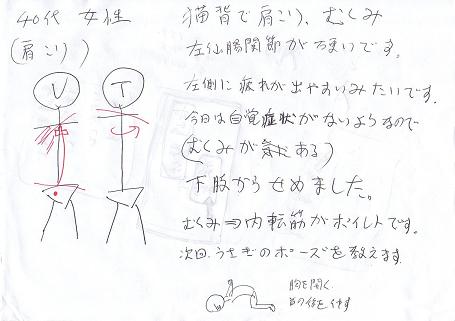 40代 女性
(肩こり)
V
T
猫背で肩こり、むくみ
左仙腸関節が硬いです。
左側に疲れが出やすいみたいです。
今日は自覚症状がないようなので
(むくみが気になる)
下肢からせめました。
むくみ⇒内転筋がポイントです。
次回、うさぎのポーズを教えます
胸を開く